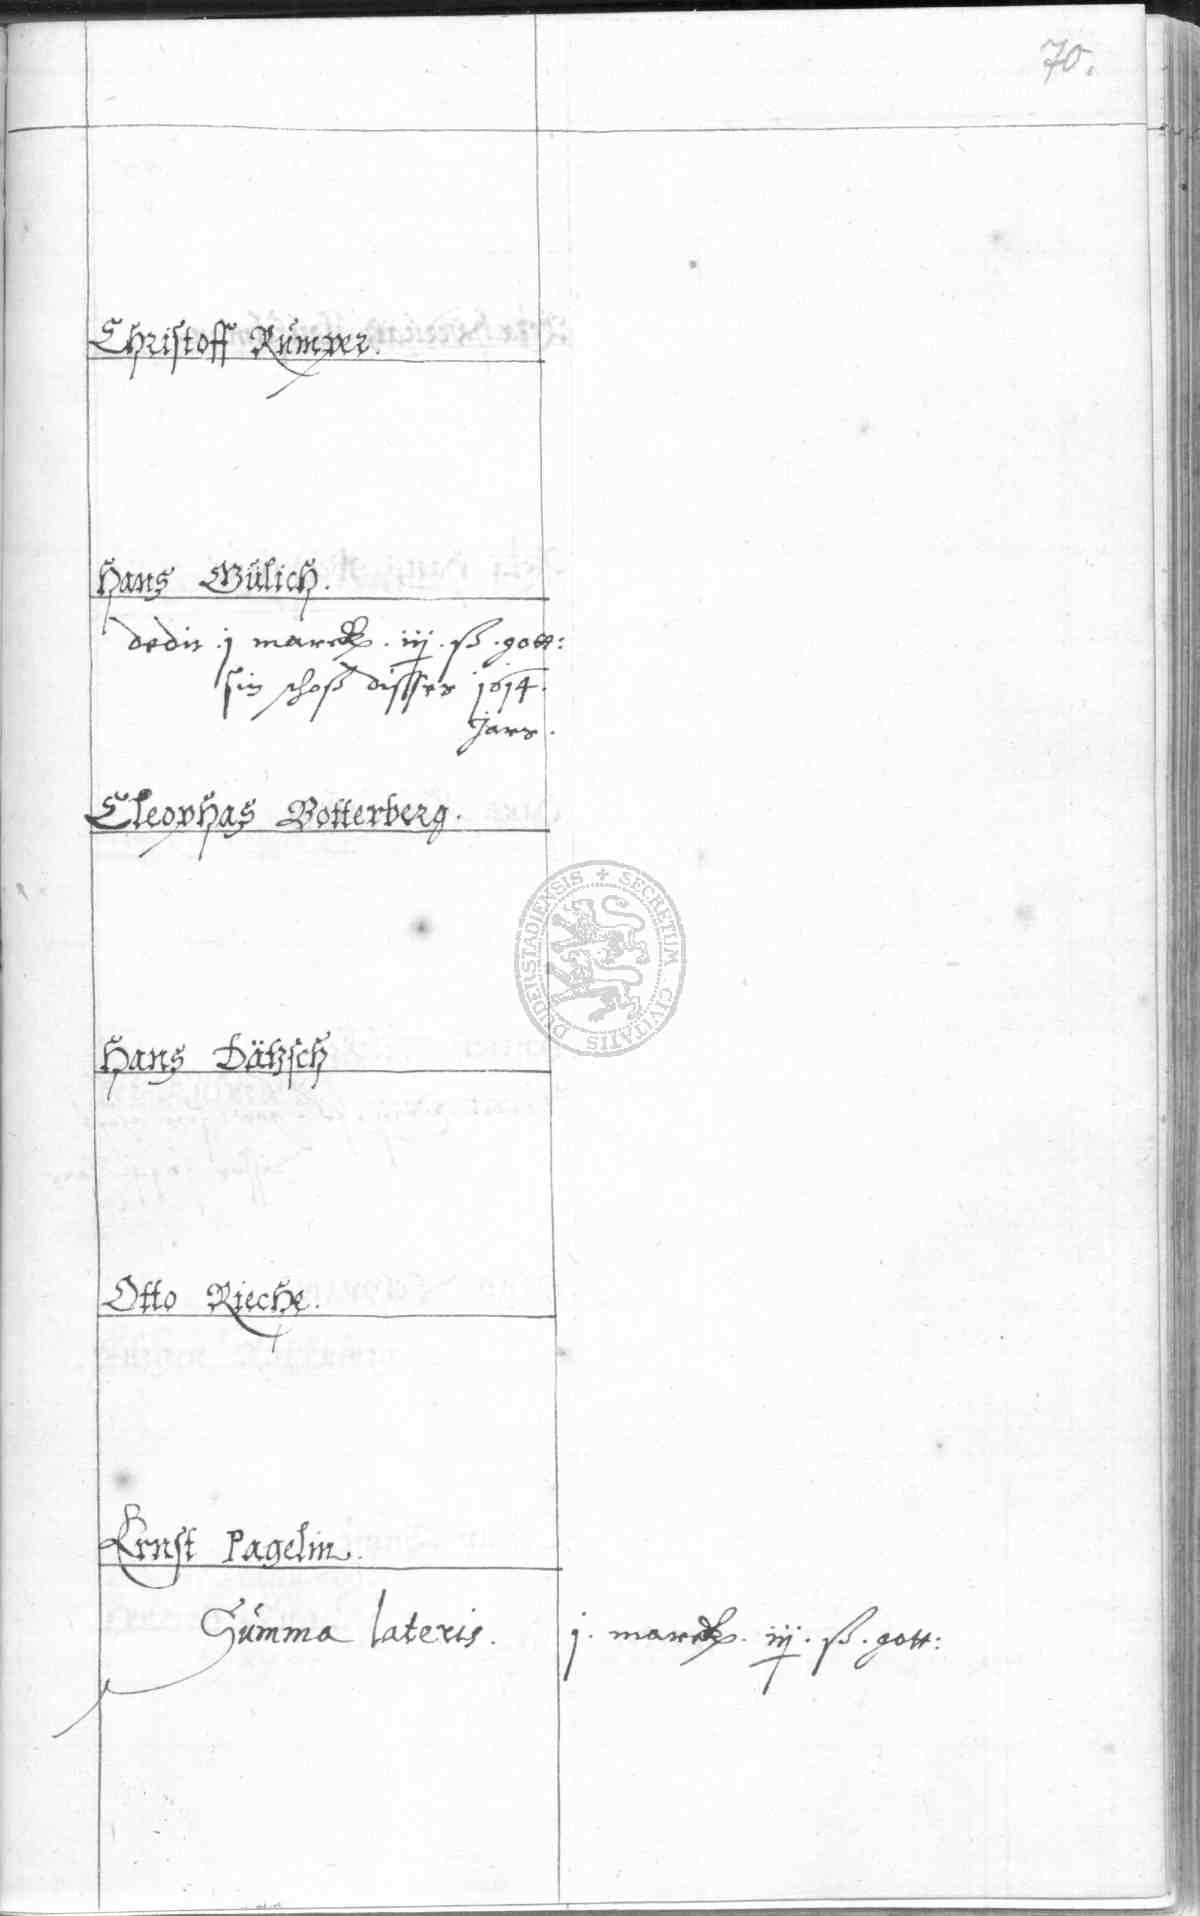 70.
Christoff Rümper.
Hans Wülich.
dedit j marck. iij. ß. gott:
sin schoß disses 1614.
Jars.
Cleophas Botterberg.
SECRETUM CIVITATIS DUDERSTADIENSIS
Hans Dätzsch
Otto Rieche.
Ernst Pagelin.
Summa lateris. j. marck. iij. ß. gott: